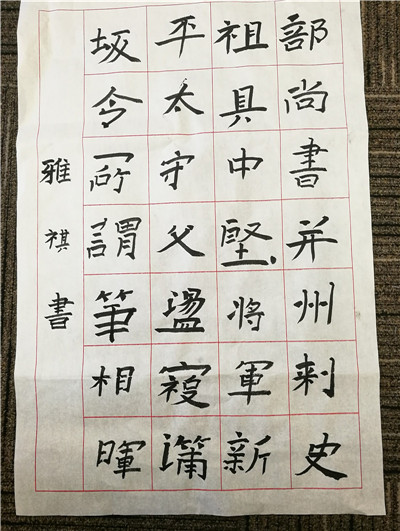 部尚書并州刺史
祖具中堅將軍新
平太守父盪寇蒲
坂令所謂華相暉
雅祺書